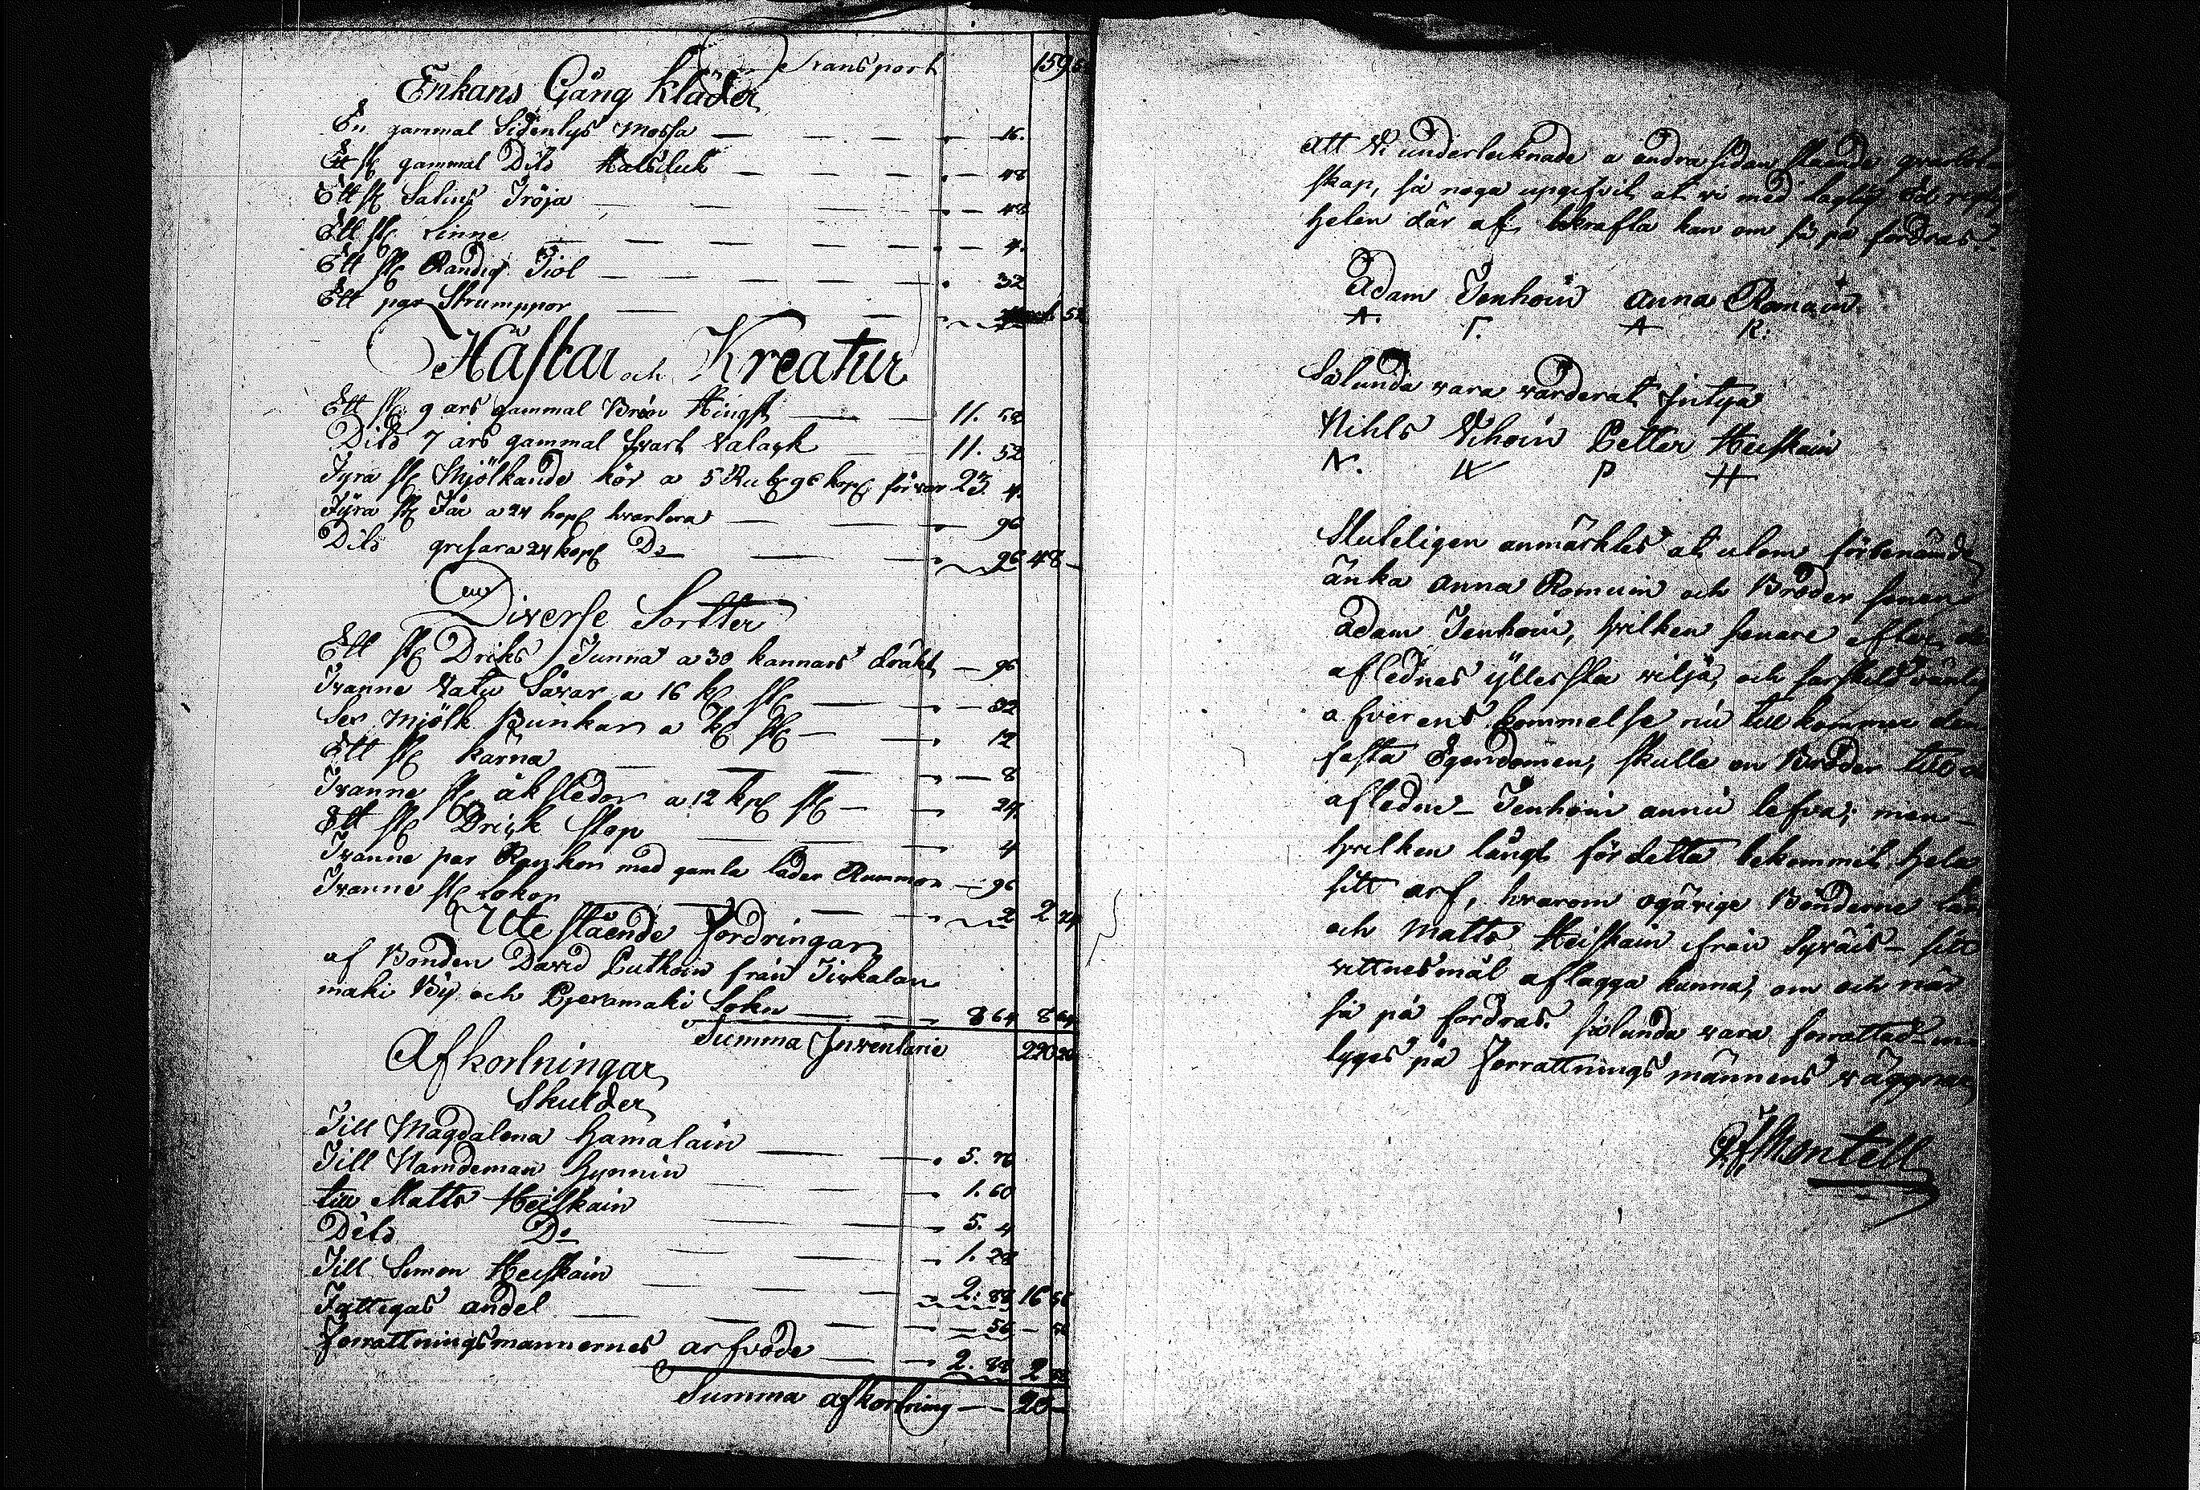 Transport 159
Enkans Gång kläder
En gammal Sidentygs Mössa — — — 16.
Ett st gammal Dito Halsduk — — — 48
Ett st Satins Tröja — — — 48
Ett st Linne — — — 4.
Ett st Randig Kiol — — — 32
Ett par Strumppor — — —
Hästar och Kreatur
Ett st 9 års gammal Brun Hingst — — 11. 52
Dito 7 års gammal svart Valack — — 11. 52
Fyra st Mjölkande kör a 5 Rub 96 kop 23. 4.
Fÿra st Får a 24 kop hvartera — — 96
Dito grisar a 24 kop Do — — 96 48 —
Diverse Sortter
Ett st Dricks Tunna a 30 kannars dräkt — 96
Tvanne Vatu Såvar a 16 k st — — 32
Sex Mjölk Bunkar a 2 k st — — 12
Ett st kärna — — — 8
Tvanne st åkslädor a 12 kop st — — 24
Ett st Drick stop — — 4
Tvanne par Ranckor med gamla läder Rummor — 96
Tvanne st Lokor — — 2 2 24
Utestående fordringar
af Bonden David Putkoin från Tiukalan
maki Bÿ och Pjexamaki Sokn — — 8 64 8 64
Summa Inventarie 220 20
Afkortningar
Skulder
Till Magdalena Hamalain — — 5. 76
Till Namdeman Hynnin — — 1. 60
till Matts Heiskain — — 5. 4
Dito Do — — 1. 28
Till Simon Heiskain — — 2. 88 16 56
Fattigas andel — — 56 — 56
Forrattningsmannernes arfvode — — 2. 88 2 88
Summa afkortning — — 20 —
Att Vi undertecknade a andra sidan stående
skap, så noga upgifvit at vi med laglig Ed
helen där af, bekrafta kan om så på fordras
Adam Ienhoin Anna Romain
A. I. A R.
Sålunda vara värderat Intyga
Nihls Vihoin Petter Heiskain
N. W P H
Sluteligen anmärktes at utom förbenämde
änka Anna Romain och Broder sonen
Adam Ienhoin, hvilken senare efter de
aflednes ÿtterssta vilja, och sarskild
afverens kommelse nu till kommer den
fasta Egendomen, skulle en Broder till a
afledne Ienhoin annu lefva; men
hvilken långt för detta bekommit hela
sitt arf, hvarom ogärige Bönderne
och Matts Heiskain ifrån Syväis — sitt
vittnesmål aflagga kunna, om och när
så på fordras. Sålunda vara forrattad
tyges på Forrattnings männens väggnar
Montell